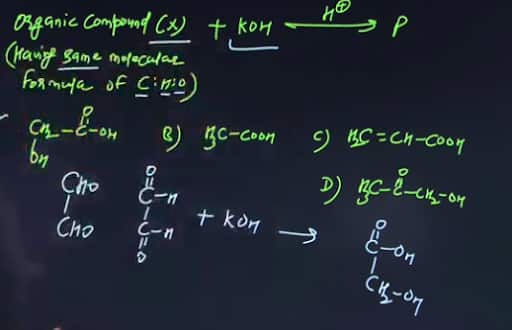 Organic Compound (X) + KOH ⇌ H⊕ P
(Having same molecular
formula of C:H:O)
CH₂-C-OH
O
OH
B) H₃C-COOH
C) H₂C=CH-COOH
D) H₃C-C-CH₂-OH
O
CHO
CHO
O
C-H
C-H
O
+ KOH →
O
C-OH
CH₂-OH